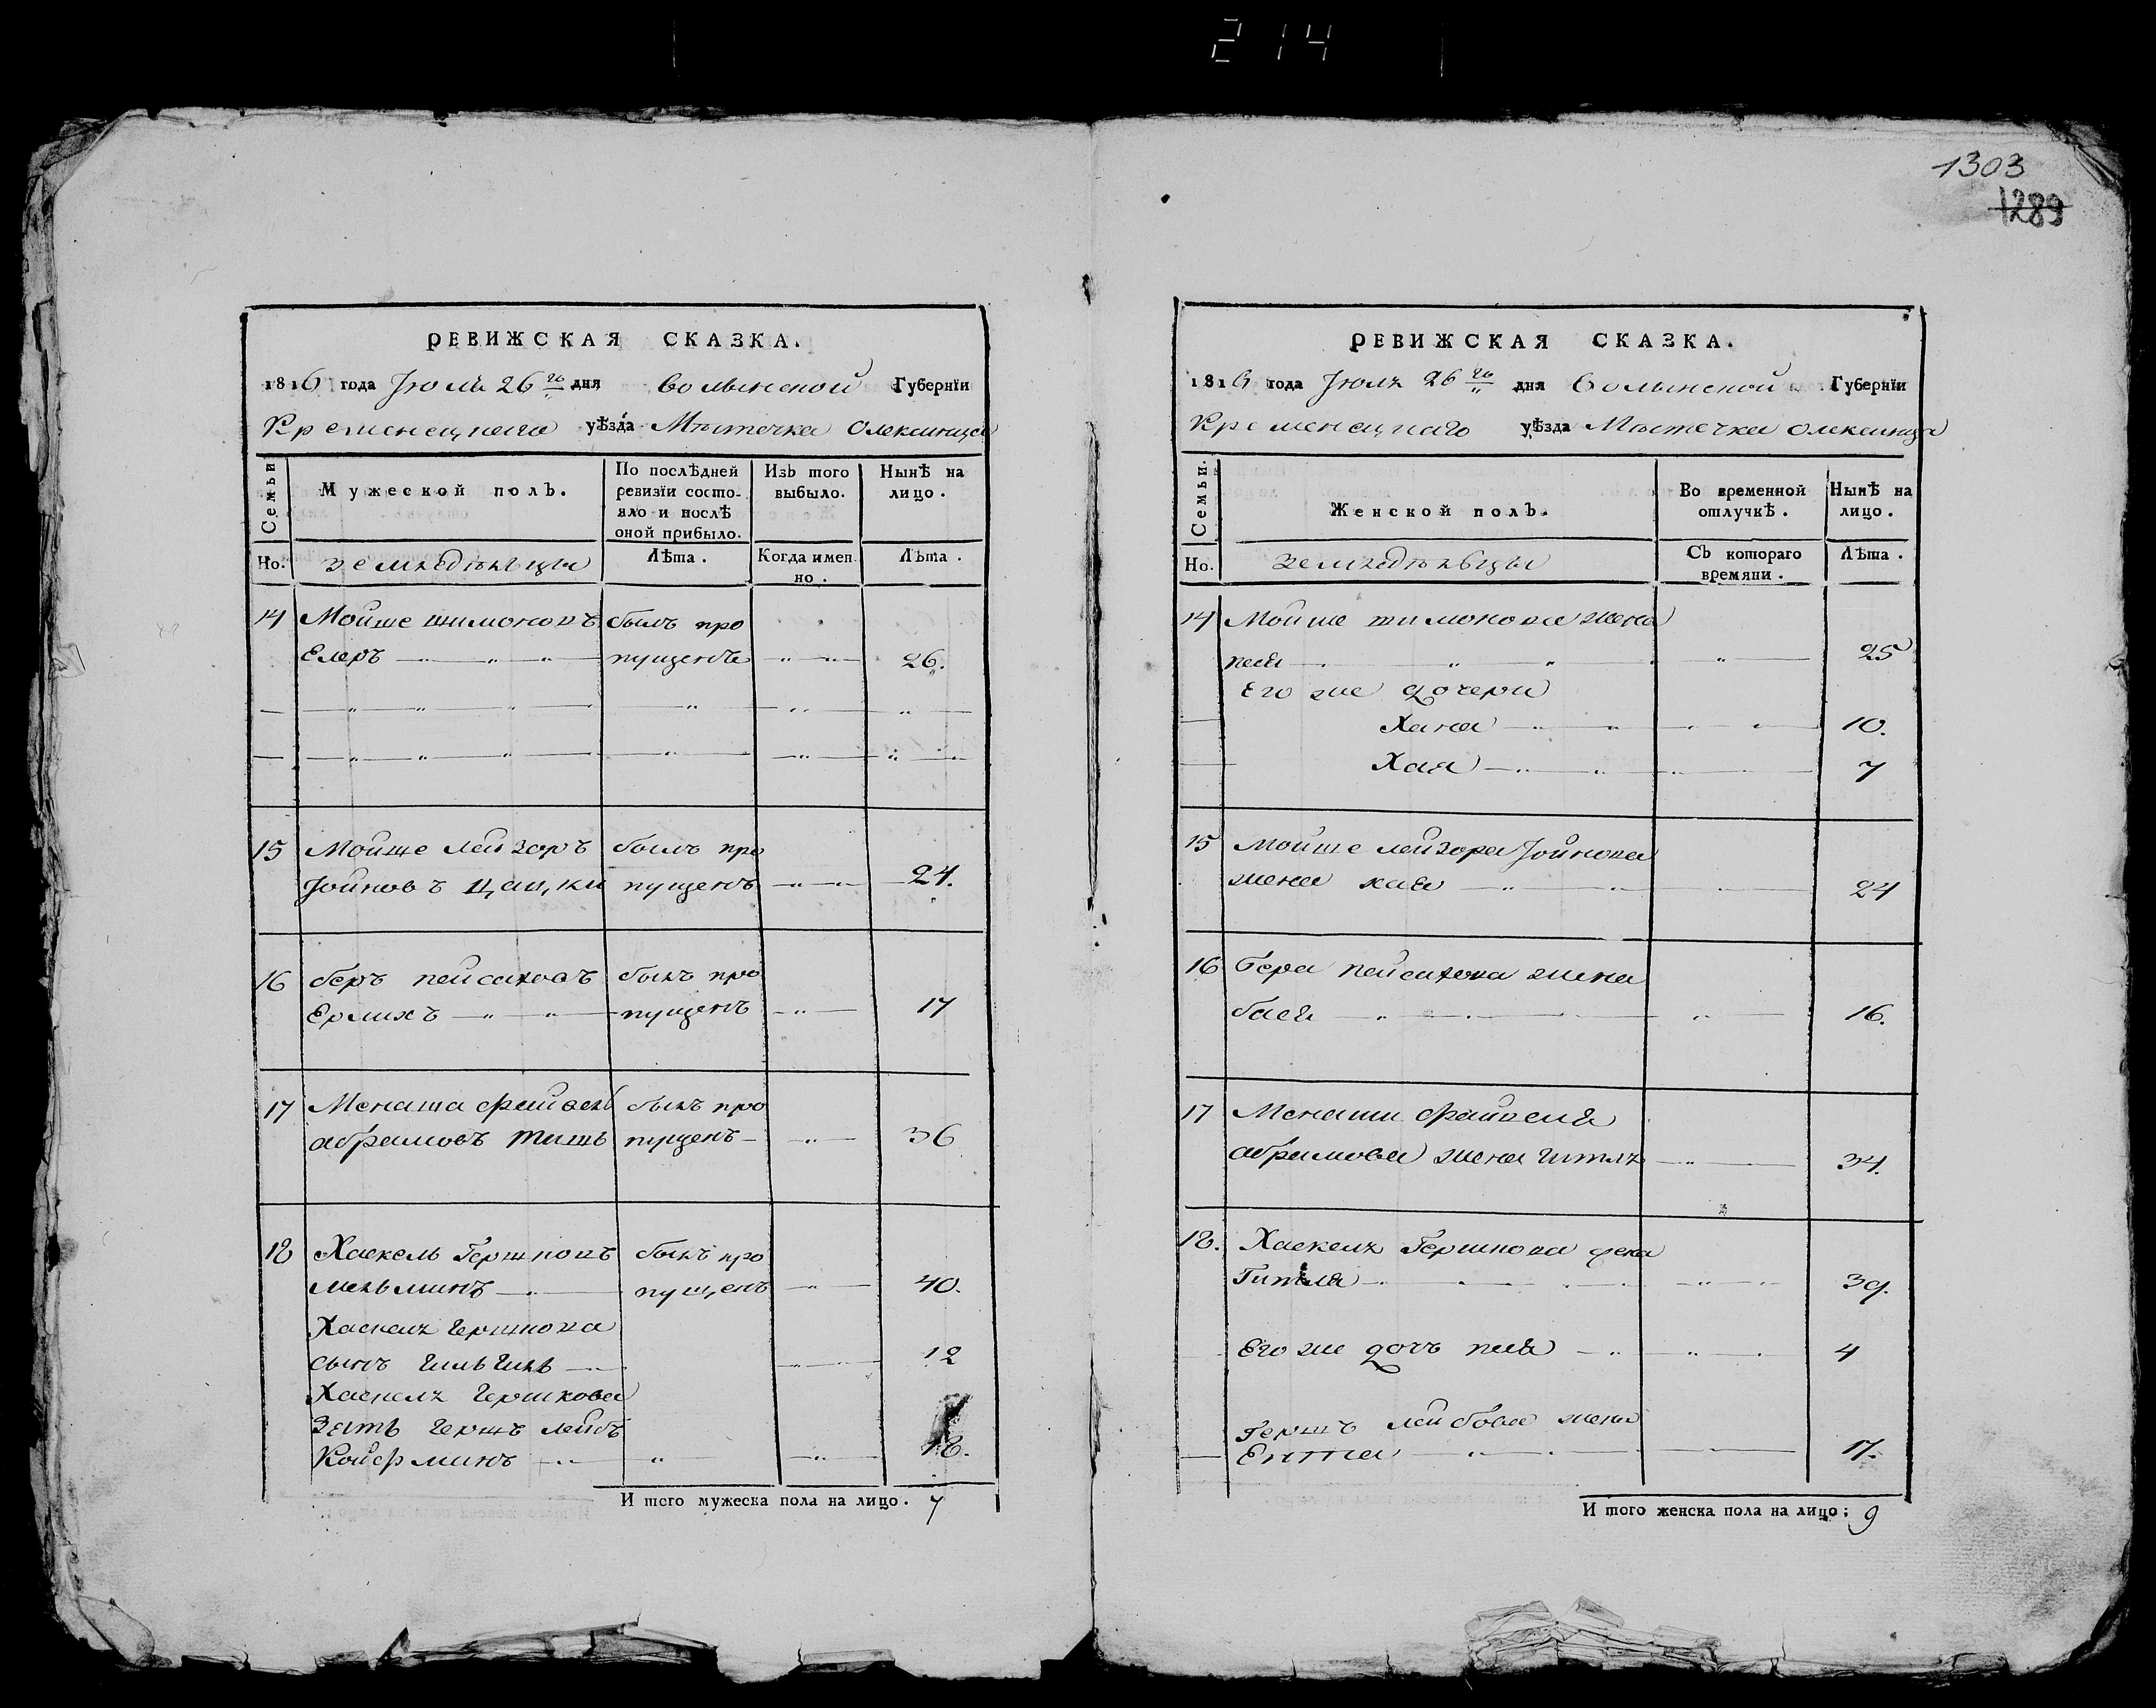 214
1303
1289
РЕВИЖСКАЯ СКАЗКА.
1816 года Июля 26го дня Волынской Губернїи
Кременецкаго уѣзда Мѣстечка Олексинца
Семьи
Мужеской полъ.
По послѣдней ревизїи состояло и послѣ оной прибыло.
Изъ того выбыло.
Нынѣ на лицо.
Но.
Земледѣльцы
Лѣта.
Когда именно.
Лѣта.
14 Мойше Шимоновъ былъ про
Елеръ пущенъ 26.
15 Мойше Лейзоръ былъ про
Іойновъ пущенъ 24.
16 Беръ Пейсаховъ былъ про
Ерлихъ пущенъ 17
17 Менаша Файвель былъ про
Абрамовъ Тишъ пущенъ 36
18 Хаскель Гершковъ былъ про
Мельминъ пущенъ 40.
Хаскеля Гершкова
сынъ 12
Хаскеля Гершкова
Зять Гершъ Лейбъ
Койфминъ 18.
И того мужеска пола на лицо. 7
РЕВИЖСКАЯ СКАЗКА.
1816 года Июля 26го дня Волынской Губернїи
Кременецкаго уѣзда Мѣстечка Олексинца
Семьи.
Женской полъ.
Во временной отлучкѣ.
Нынѣ на лицо.
Но.
Земледѣльцы
Съ котораго времяни.
Лѣта.
14 Мойше Шимонова жена
Песя 25
Его же дочери
Хана 10.
Хая 7
15 Мойше Лейзора Іойнова
жена Хая 24
16 Бера Пейсахова жена
Бася 16.
17 Менаши Файвеля
Абрамова жена Гитля 34.
18. Хаскеля Гершкова жена
Гитля 39.
Его же дочь 4
Гершъ Лейбова жена
Ентта 17.
И того женска пола на лицо; 9